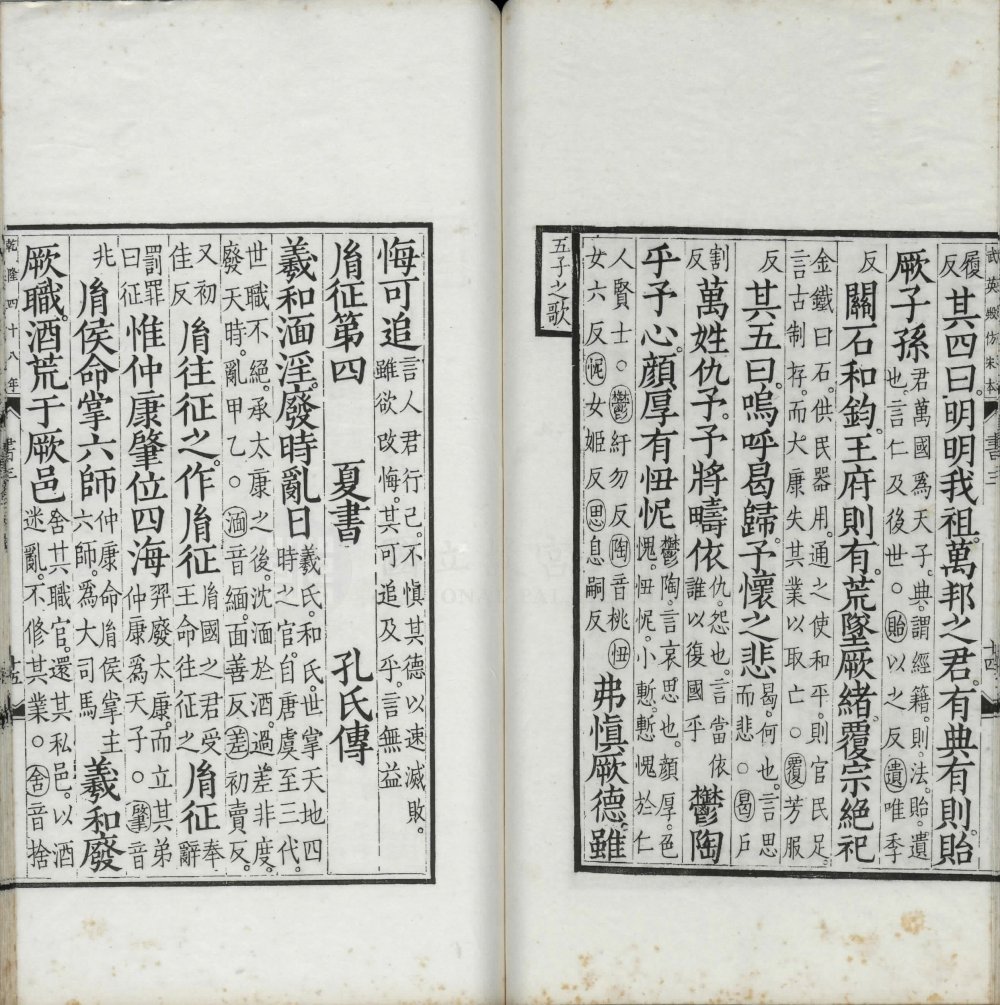 五子之歌
履反其四曰明明我祖萬邦之君有典有則貽
厥子孫君萬國爲天子典謂經籍則法貽遺也言仁及後世○貽以之反遺唯季反
關石和鈞王府則有荒墜厥緒覆宗絶祀
金鐵曰石供民器用通之使和平則官民足言古制存而大康失其業以取亡○覆芳服反
其五曰嗚呼曷歸予懷之悲曷何也言思而悲○曷戶割反
萬姓仇予予將疇依仇怨也言當依誰以復國乎鬱陶
乎予心顔厚有忸怩鬱陶言哀思也顔厚色愧忸怩小慙慙愧於仁
人賢士○鬱紆勿反陶音桃忸女六反怩女姬反思息嗣反弗愼厥德雖
悔可追言人君行己不愼其德以速滅敗雖欲改悔其可追及乎言無益
胤征第四 夏書 孔氏傳
羲和湎淫廢時亂日羲氏和氏世掌天地四時之官自唐虞至三代
世職不絕承太康之後沈湎於酒過差非度廢天時亂甲乙○湎音緬面善反差初賣反
又初佳反胤往征之作胤征胤國之君受王命往征之胤征奉辭
罰罪曰征惟仲康肇位四海羿廢太康而立其弟仲康爲天子○肇音
兆胤侯命掌六師仲康命胤侯掌主六師爲大司馬羲和廢
厥職酒荒于厥邑舍其職官還其私邑以酒迷亂不修其業○舍音捨
乾隆四十八年
書三
武英殿仿宋本
書三
十四